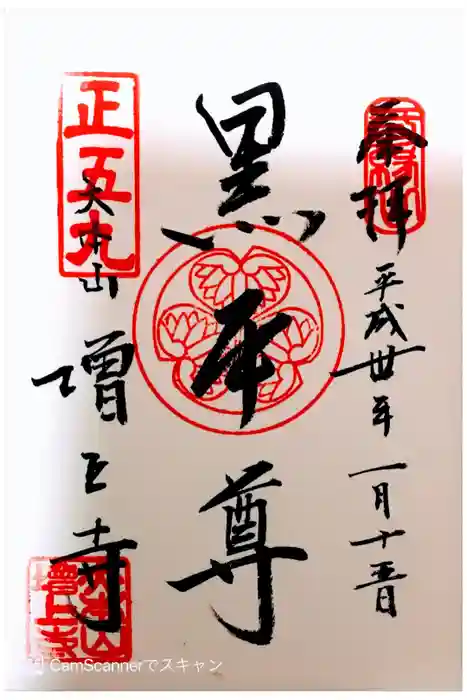 参拝
平成卅年 一月十五日
黒本尊
正五九
大本山
増上寺
大本山
増上寺
CamScannerでスキャン